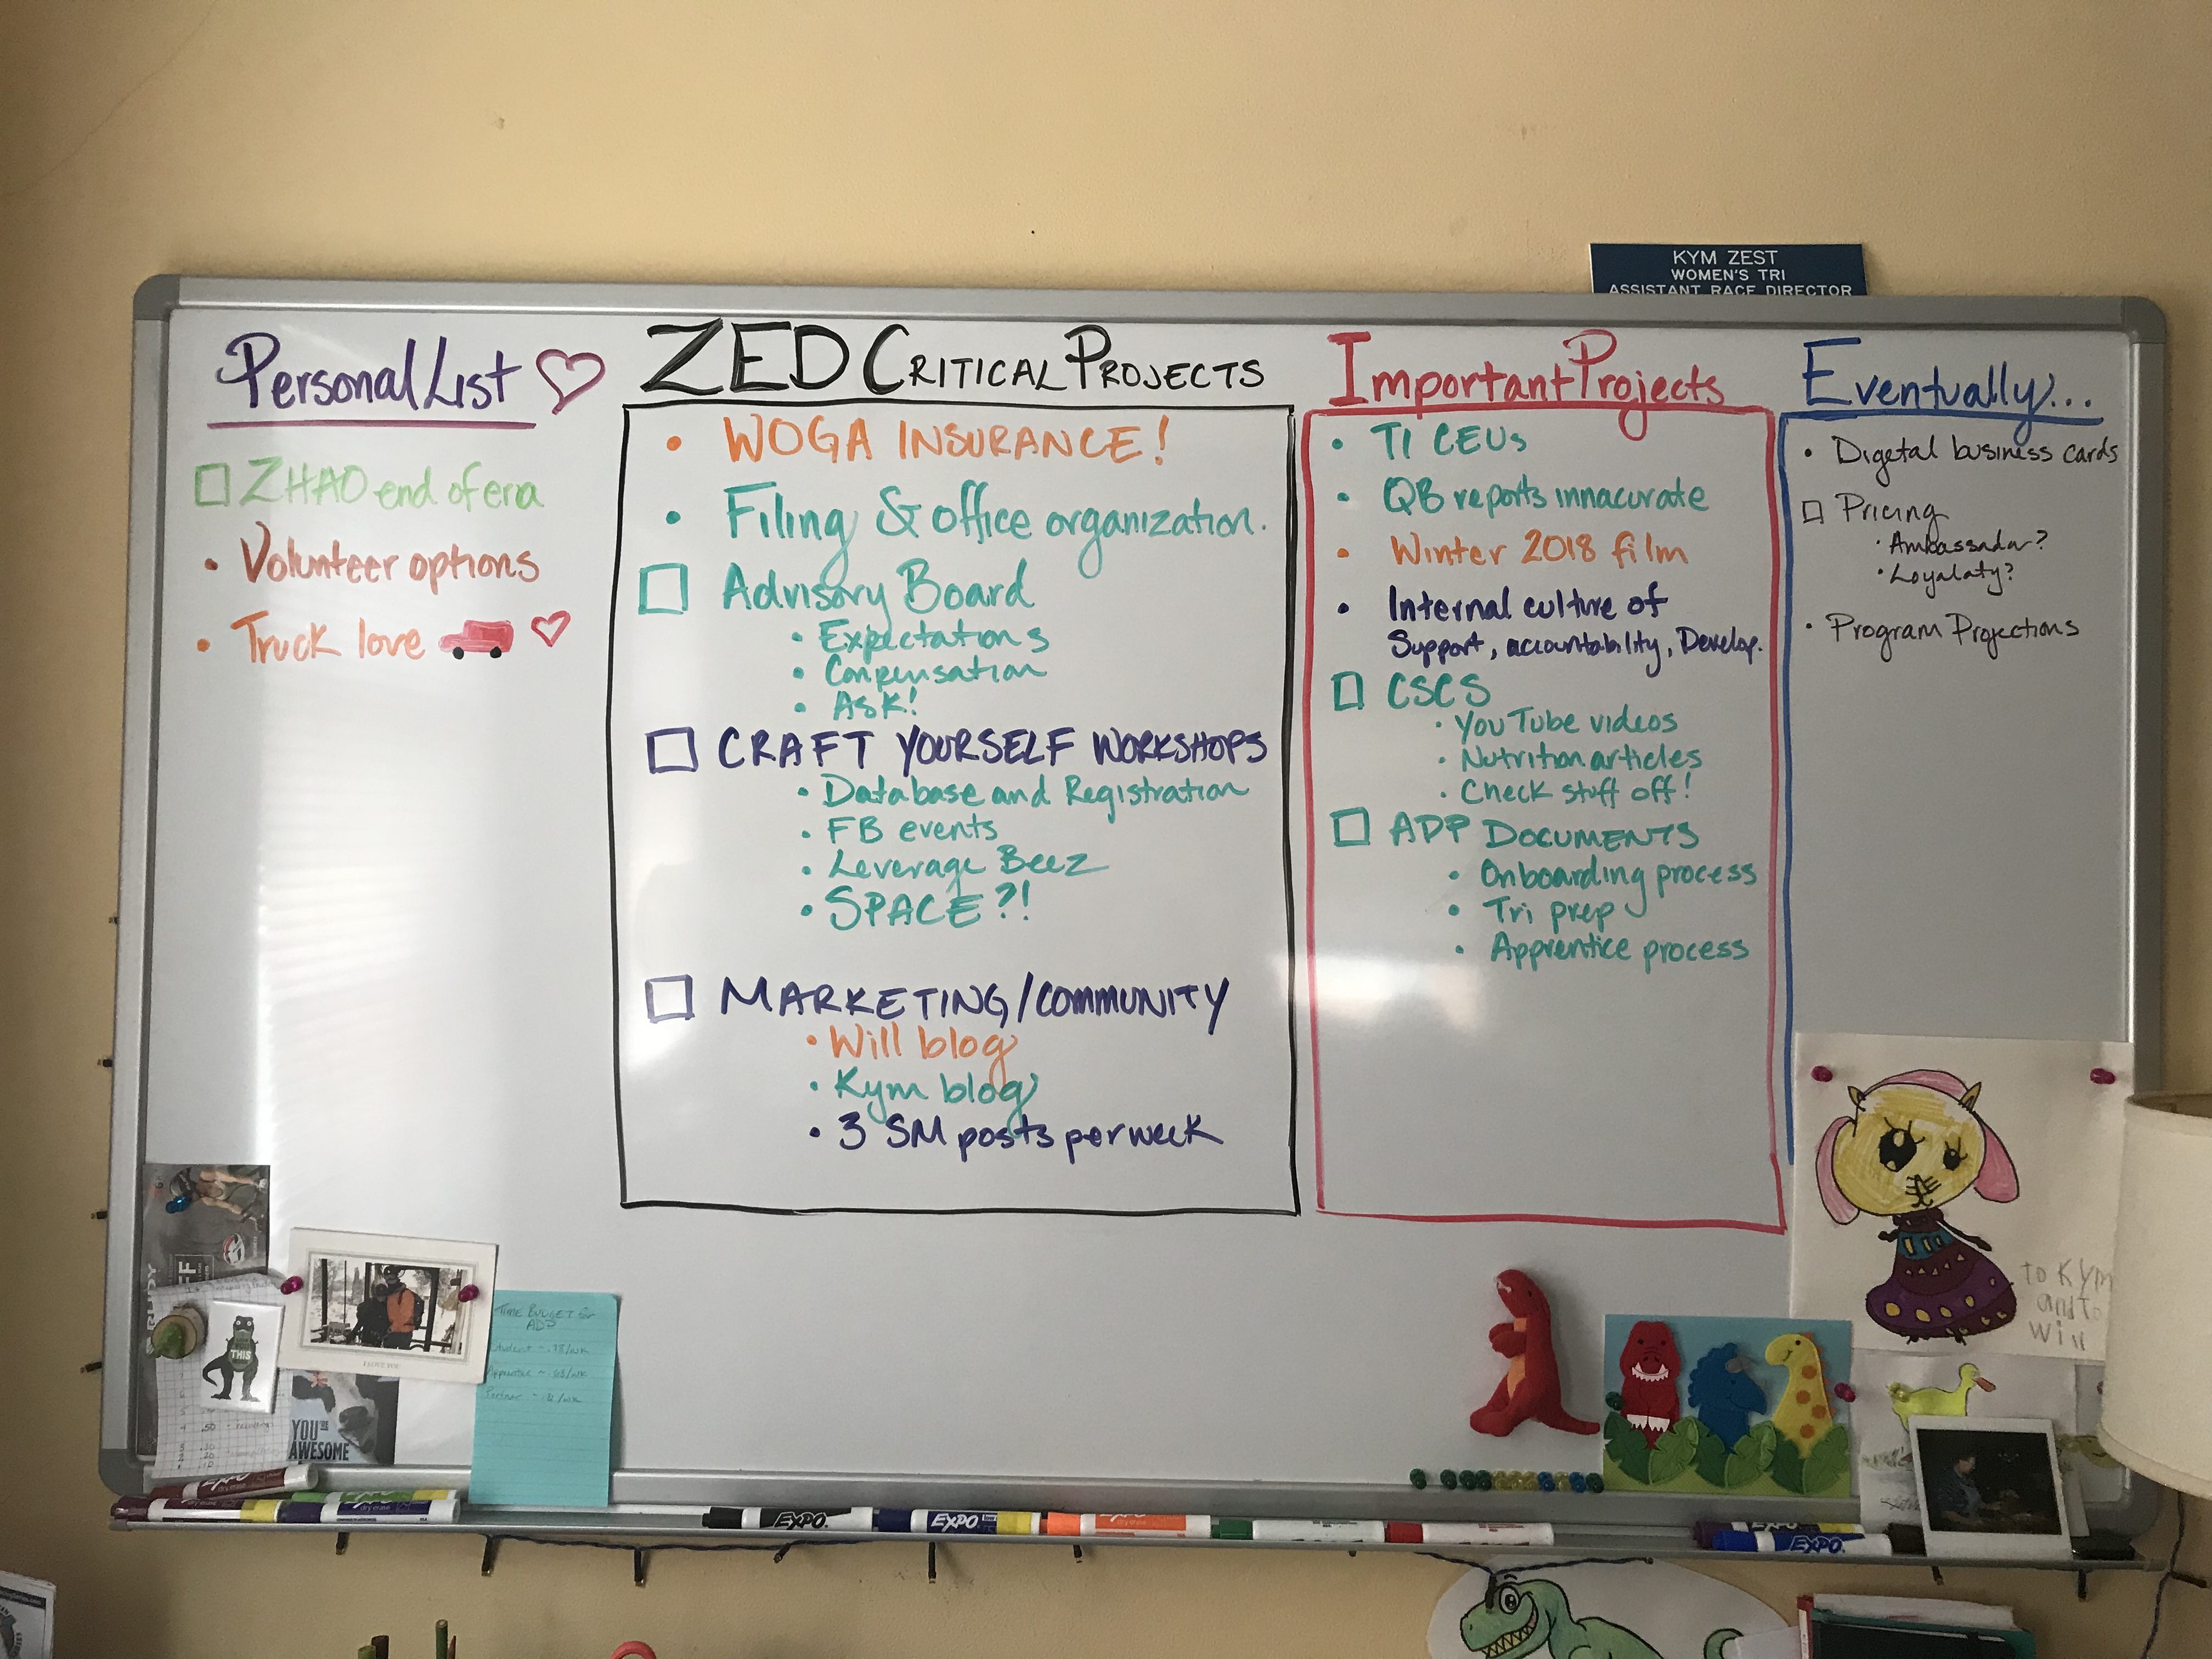 KYM ZEST
WOMEN'S TRI
ASSISTANT RACE DIRECTOR
Personal List
ZHAO end of era
Volunteer options
Truck love
ZED CRITICAL PROJECTS
• WOGA INSURANCE!
• Filing & office organization.
Advisory Board
• Expectations
• Conpensation
• ASK!
CRAFT YOURSELF WORKSHOPS
• Database and Registration
• FB events
• Leverage Beez
• SPACE?!
MARKETING/COMMUNITY
• Will blog
• Kym blog
• 3 SM posts per week
Important Projects
• TI CEUs
• QB reports innacurate
• Winter 2018 film
• Internal culture of
Support, accountability, Develop.
CSCS
• YouTube videos
• Nutrition articles
• Check stuff off!
ADP DOCUMENTS
• Onboarding process
• Tri prep
• Apprentice process
Eventually...
• Digetal business cards
Pricing
• Ambassador?
• Loyalaty?
• Program Projections
to Kym
and To
Will
TIME BUDGET for
ADP
THIS
YOU'RE
AWESOME
I LOVE YOU
EXPO
EXPO
EXPO
EXPO